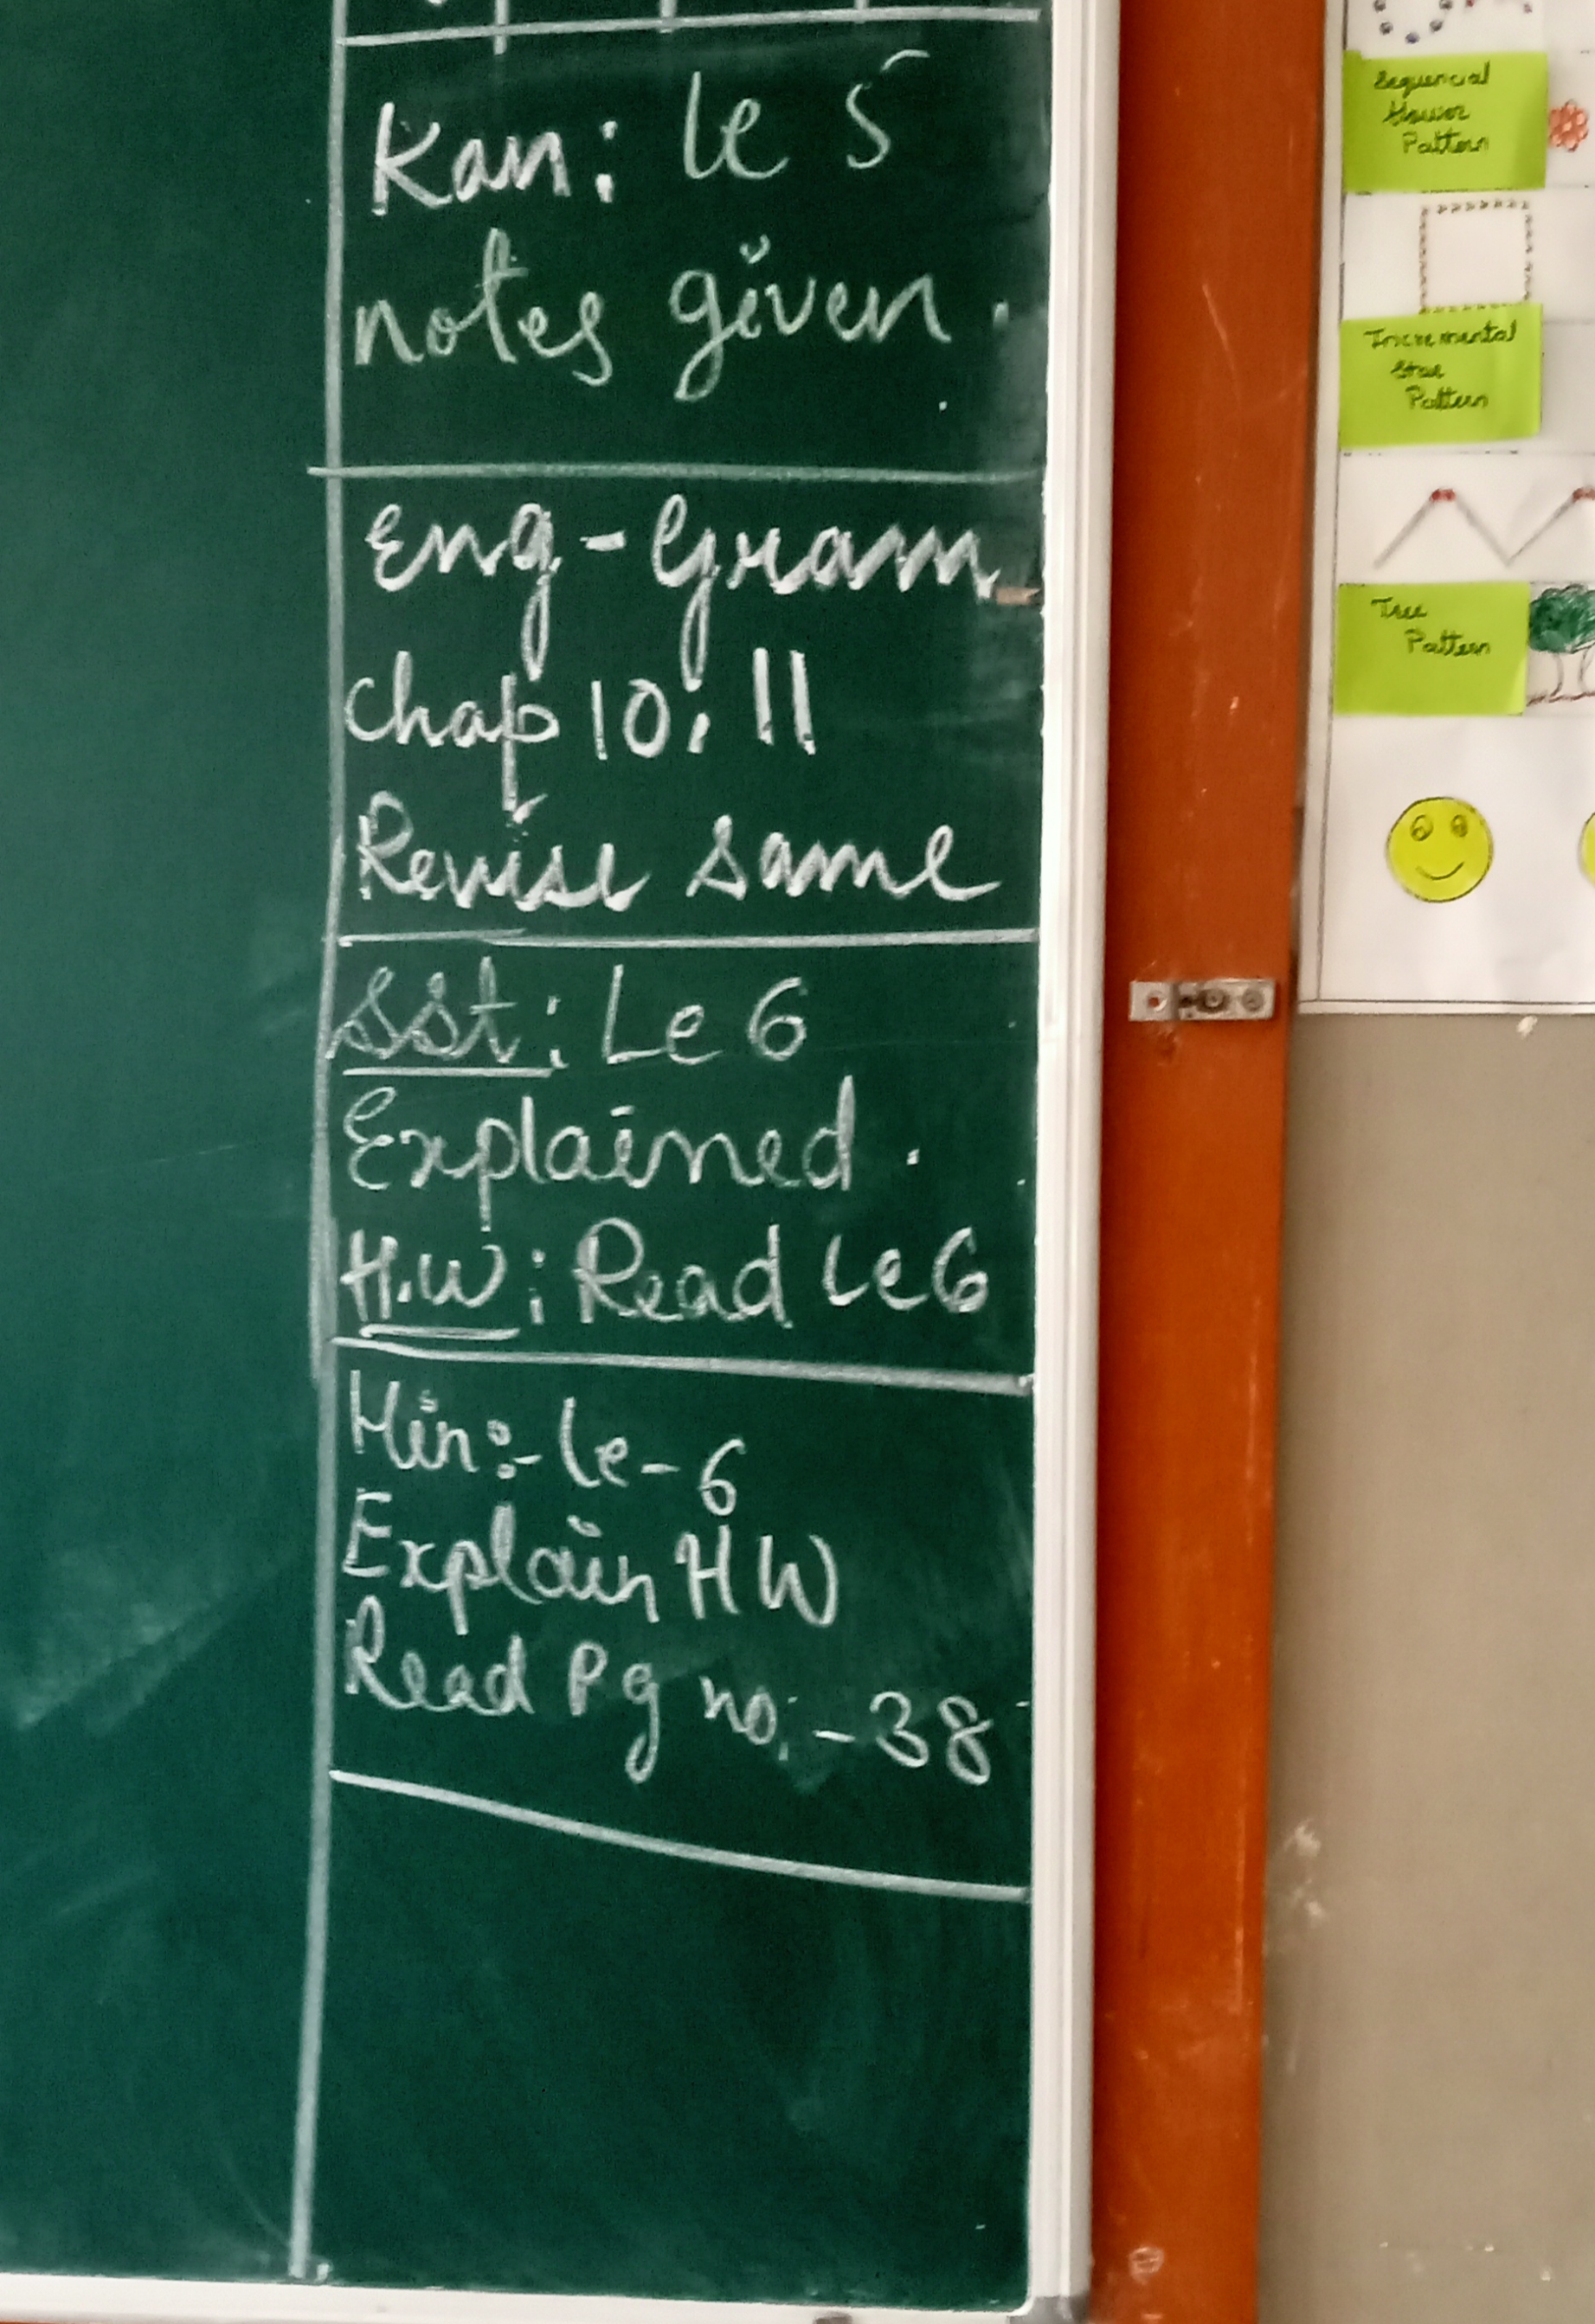 Kan: le 5
notes given.
Eng-Gram
Chap 10, 11
Revise same
SSt: Le 6
Explained.
H.W: Read Le 6
Hin:- le-6
Explain HW
Read Pg no:-38
Sequencial
flower
Pattern
Incremental
Star
Pattern
Tree
Pattern